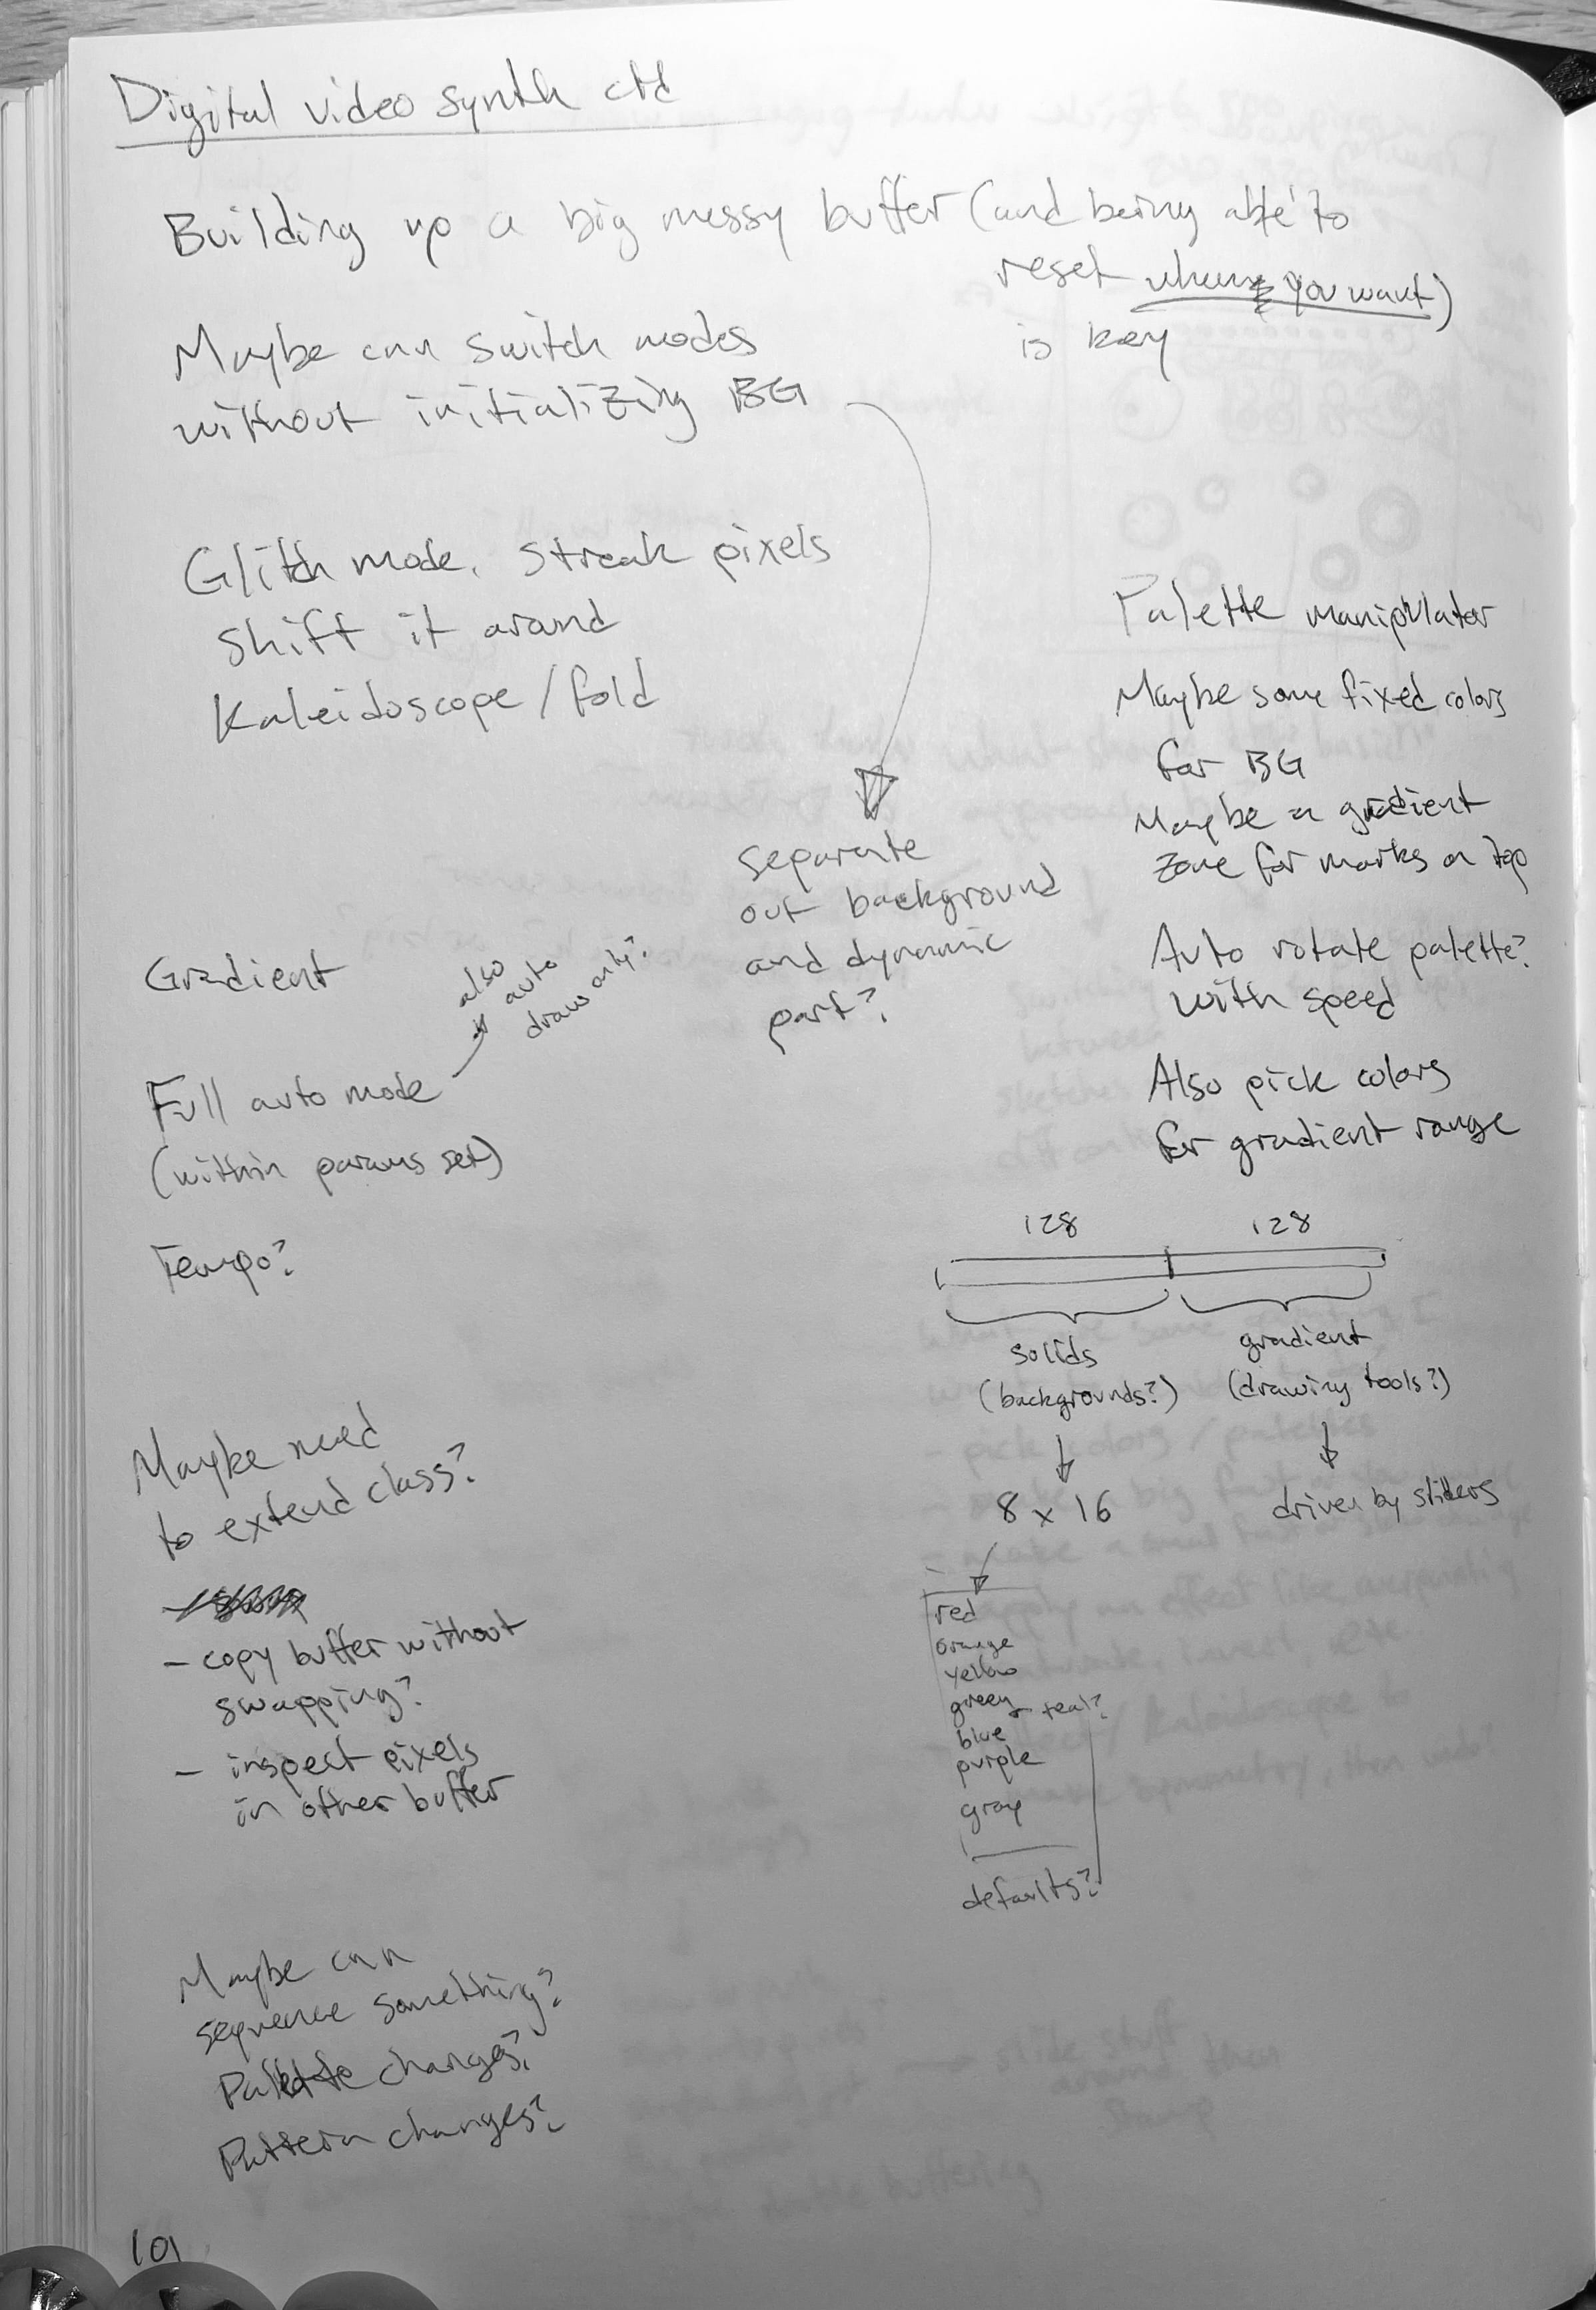 Digital video synth ctd
Building up a big messy buffer (and being able to
reset when you want)
is key
Maybe can switch modes
without initializing BG
Glitch mode. Streak pixels
Shift it around
Kaleidoscope / fold
separate
out background
and dynamic
part?
Gradient
also
auto
draw only?
Full auto mode
(within params set)
Tempo?
Maybe need
to extend class?
- copy buffer without
swapping?
- inspect pixels
in other buffer
Maybe can
sequence something?
Palette changes?
Pattern changes?
Palette manipulator
Maybe some fixed colors
for BG
Maybe a gradient
zone for marks on top
Auto rotate palette?
with speed
Also pick colors
for gradient range
128 128
solids
(backgrounds?)
gradient
(drawing tools?)
8 x 16
driven by sliders
red
orange
yellow
green
teal?
blue
purple
gray
defaults?
101